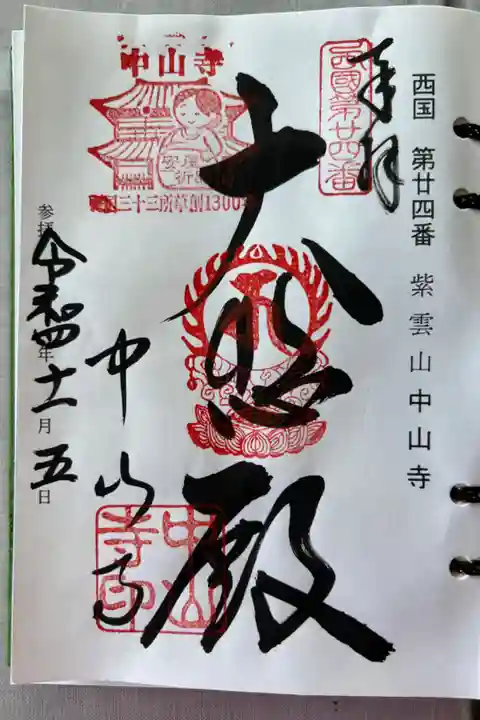 西国 第廿四番 紫雲山中山寺
奉拝
西國第廿四番
大悲殿
中山寺
中山寺
安産祈願
三十三所草創1300年
中山寺印
参拝
令和四年十一月五日